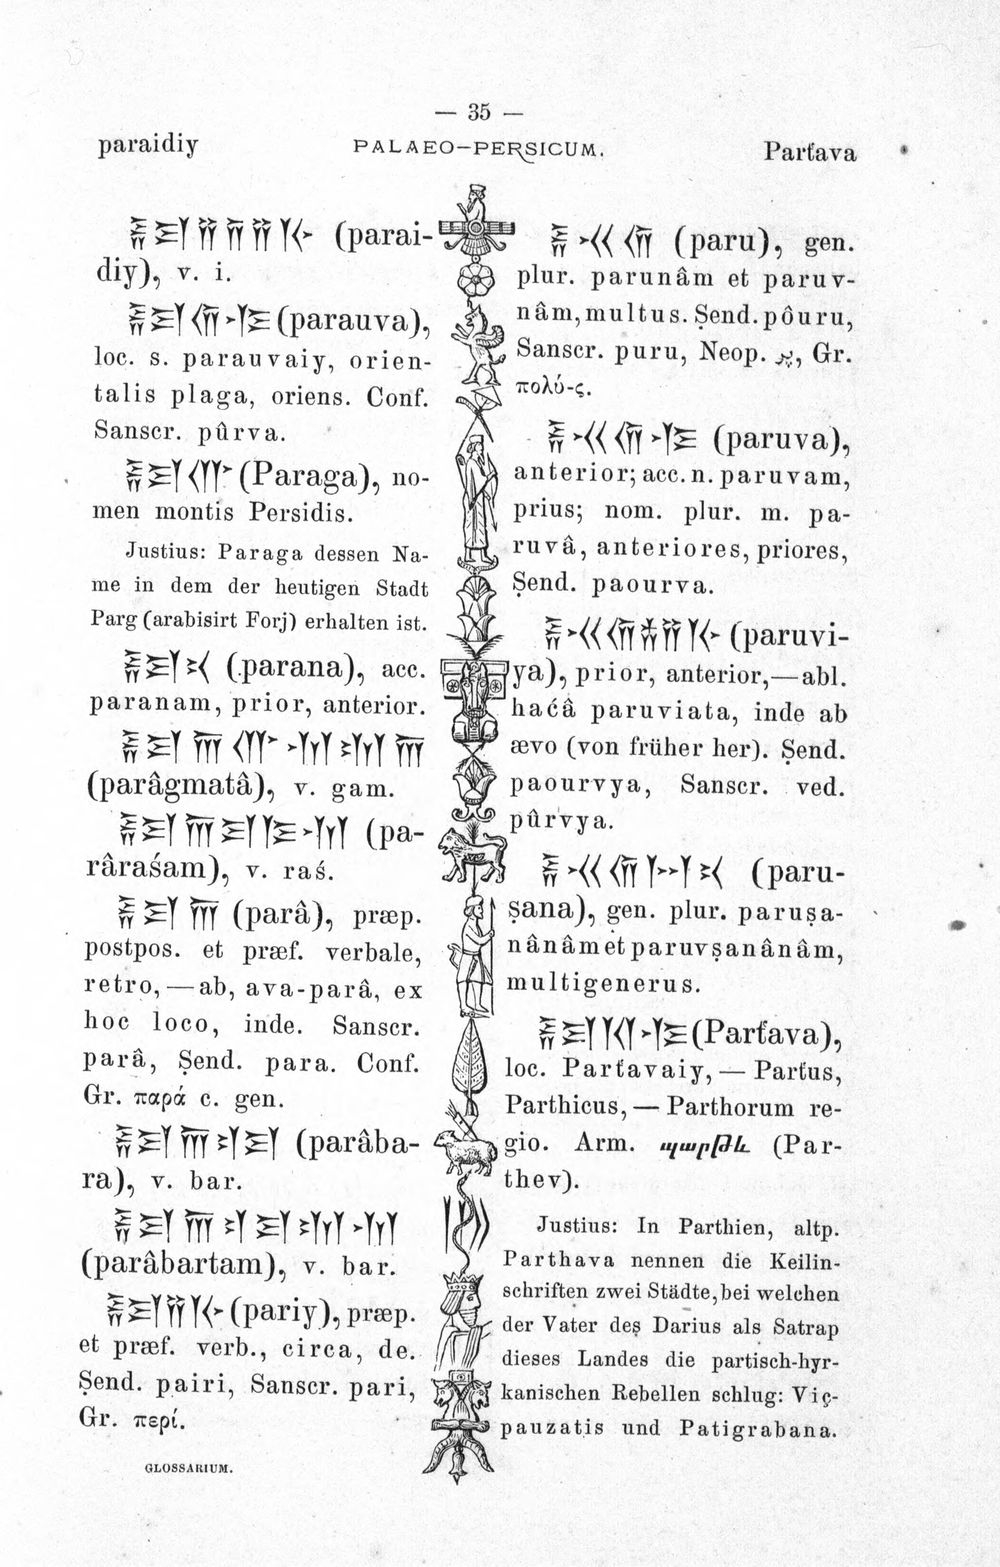 — 35 —
paraidiy PALAEO—PERSICUM. Partava
𐎱𐎼𐎡𐎭𐎡𐎹 (parai-
diy), v. i.
𐎱𐎼𐎢𐎺 (parauva),
loc. s. parauvaiy, orien-
talis plaga, oriens. Conf.
Sanscr. pûrva.
𐎱𐎼𐎥 (Paraga), no-
men montis Persidis.
Justius: Paraga dessen Na-
me in dem der heutigen Stadt
Parg (arabisirt Forj) erhalten ist.
𐎱𐎼𐎴 (parana), acc.
paranam, prior, anterior.
𐎱𐎼𐎠𐎥𐎶𐎫𐎠
(parâgmatâ), v. gam.
𐎱𐎼𐎠𐎼𐎿𐎶 (pa-
râraśam), v. raś.
𐎱𐎼𐎠 (parâ), præp.
postpos. et præf. verbale,
retro, — ab, ava-parâ, ex
hoc loco, inde. Sanscr.
parâ, Şend. para. Conf.
Gr. παρά c. gen.
𐎱𐎼𐎠𐎲𐎼 (parâba-
ra), v. bar.
𐎱𐎼𐎠𐎲𐎼𐎫𐎶
(parâbartam), v. bar.
𐎱𐎼𐎡𐎹 (pariy), præp.
et præf. verb., circa, de.
Şend. pairi, Sanscr. pari,
Gr. περί.
GLOSSARIUM.
𐎱𐎽𐎢 (paru), gen.
plur. parunâm et paruv-
nâm, multus. Şend. pôuru,
Sanscr. puru, Neop. پر, Gr.
πολύ-ς.
𐎱𐎽𐎢𐎺 (paruva),
anterior; acc. n. paruvam,
prius; nom. plur. m. pa-
ruvâ, anteriores, priores,
Şend. paourva.
𐎱𐎽𐎢𐎻𐎡𐎹 (paruvi-
ya), prior, anterior, — abl.
haćâ paruviata, inde ab
ævo (von früher her). Şend.
paourvya, Sanscr. ved.
pûrvya.
𐎱𐎽𐎢𐏀𐎴 (paru-
şana), gen. plur. paruşa-
nânâm et paruvşanânâm,
multigenerus.
𐎱𐎼𐎰𐎺 (Partava),
loc. Partavaiy, — Partus,
Parthicus, — Parthorum re-
gio. Arm. պարթև (Par-
thev).
Justius: In Parthien, altp.
Parthava nennen die Keilin-
schriften zwei Städte, bei welchen
der Vater des Darius als Satrap
dieses Landes die partisch-hyr-
kanischen Rebellen schlug: Viç-
pauzatis und Patigrabana.